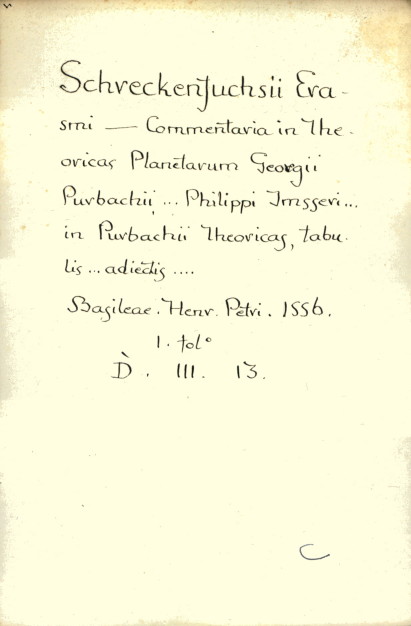 Schreckenfuchsii Era-
smi — Commentaria in The-
oricas Planetarum Georgii
Purbachii, ... Philippi Imsseri ...
in Purbachii Theoricas, tabu-
lis ... adiectis ....
Basileae. Henr. Petri. 1556.
1. folº
D̀. III. 13.
C